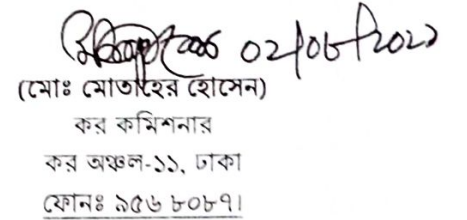 02/06/2021
(মোঃ মোতাহের হোসেন)
কর কমিশনার
কর অঞ্চল-১১, ঢাকা
ফোনঃ ৯৫৬ ৮০৮৭।